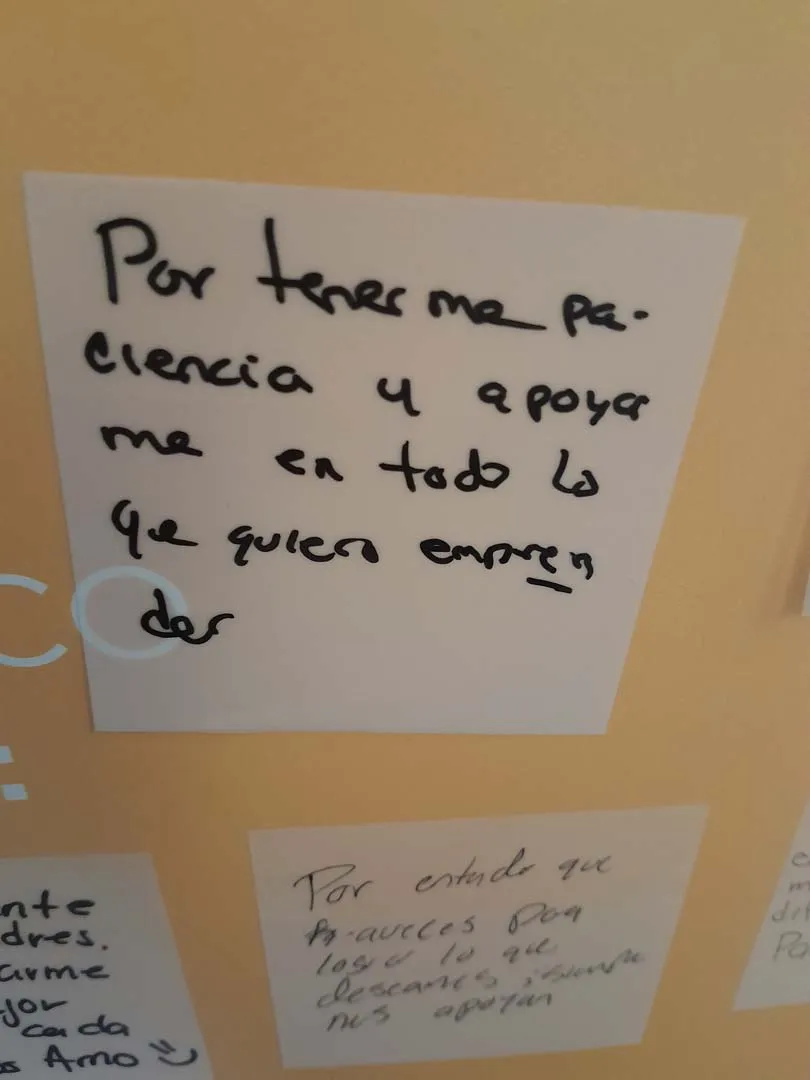 Por tenerme pa-
ciencia y apoyar
me en todo lo
que quiero empren
der
CO
:
nte
dres.
arme
jor
cada
s Amo
Por que
aveces por
lo que
nos apoyan